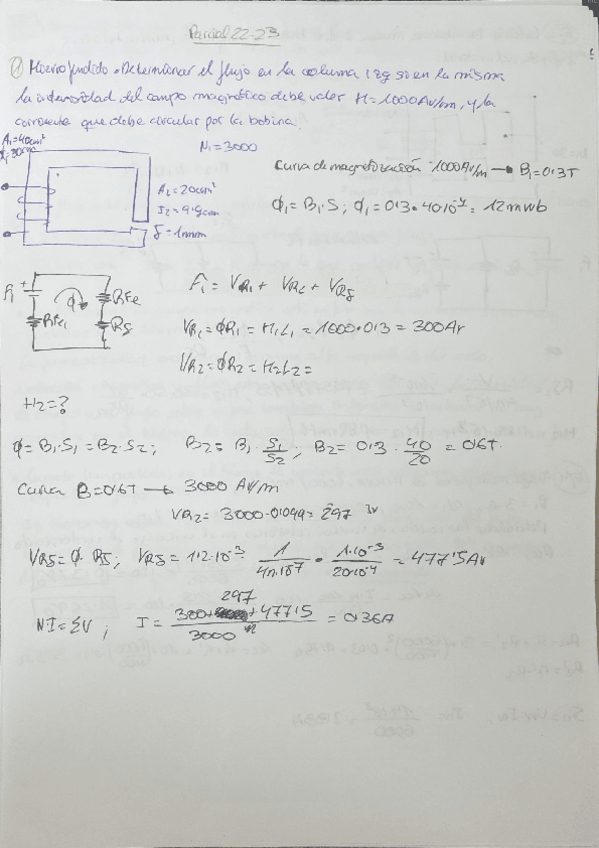 Parcial 22-23
① Hierro fundido. Determinar el flujo en la columna izq si en la misma
la intensidad del campo magnético debe valer H=1000Av/m, y la
corriente que debe circular por la bobina.
A₁=40cm²
N₁=3000
Curva de magnetización 1000Av/m → B₁=0'3T
A₂=20cm²
l₂=9'9cm
δ=1mm
ϕ₁=B₁·S; ϕ₁=0'3·40·10⁻⁴=1'2mwb
F₁ = VR₁ + VR₂ + VRδ
VR₁=ϕR₁=H₁L₁=1000·0'3=300Av
VR₂=ϕR₂=H₂L₂=
H₂=?
ϕ=B₁·S₁=B₂·S₂; B₂=B₁·S₁/S₂; B₂=0'3·40/20=0'6T.
Curva B=0'6T → 3000 Av/m
VR₂=3000·0'099=297 Av
VRδ=ϕ·Rδ; VRδ=1'2·10⁻³·1/4π·10⁻⁷·1·10⁻³/20·10⁻⁴=477'5Av
NI=ΣV; I=300+297+477'5/3000=0'36A